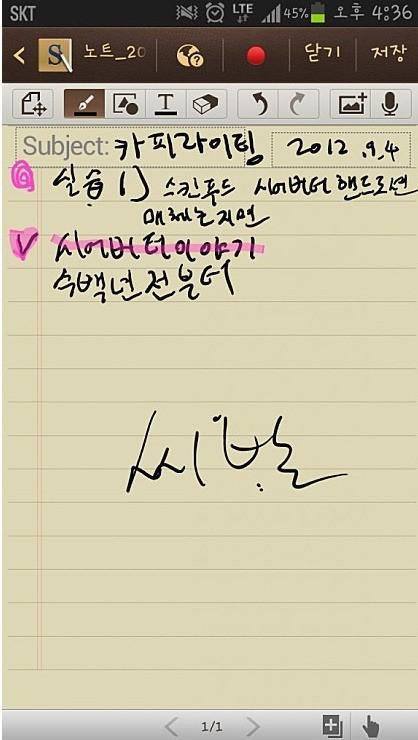 SKT LTE 45% 오후 4:36
S 노트_20 닫기 저장
T
Subject: 카피라이팅 2012.9.4
실습 1) 스킨푸드 시어버터 핸드로션
매체는 지면
V 시어버터 이야기
수백년 전부터
씨발
1/1